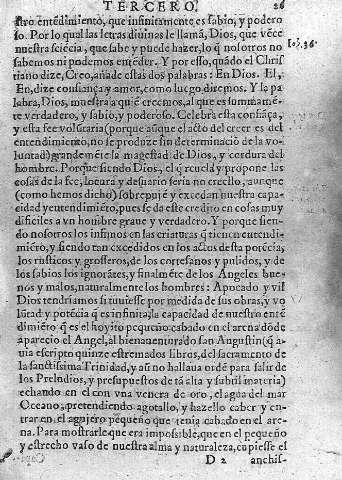 TERCERO. 26
stro entẽdimiẽto, que infinitamente es sabio, y podero
so. Por lo qual las letras diuinas le llamã, Dios, que vẽce
nuestra sciẽcia, que sabe y puede hazer, lo q̃ nosotros no
sabemos ni podemos entẽder. Y por esso, quãdo el Chris
tiano dize, Creo, añade estas dos palabras: En Dios. El,
En, dize confiança y amor, como luego diremos. Y la pa
labra, Dios, muestra a quiẽ creemos, al que es summamẽ-
te verdadero, y sabio, y poderoso. Celebra esta confiãça,
y esta fee volũtaria (porque aũque el acto del creer es del
entendimiento, no se produze sin determinaciõ de la vo-
luntad) grandemẽte la magestad de Dios, y cordura del
hombre. Porque siendo Dios, el q̃ reuela y propone las
cosas de la fee, locura y desuario seria no creello, aunque
(como hemos dicho) sobrepuje y excedan nuestra capa-
cidad y entendimiẽto, pues se da este credito en cosas muy
dificiles a vn hombre graue y verdadero. Y porque sien-
do nosotros los infinos en las criaturas q̃ tienen entendi-
miẽto, y siendo tan excedidos en los actos desta potẽcia,
los rusticos y grosseros, de los cortesanos y pulidos, y de
los sabios los ignorãtes, y finalmẽte de los Angeles bue-
nos y malos, naturalmente los hombres: Apocado y vil
Dios tendriamos si tuuiesse por medida de sus obras, y vo
lũtad y potẽcia q̃ es infinita, la capacidad de nuestro entẽ
dimiẽto q̃ es el hoyito pequeño cabado en el arena dõde
aparecio el Angel, al bienauenturado san Augustin (q̃ a-
uia escripto quinze estremados libros, del sacramento de
la sanctissima Trinidad, y aũ no hallaua ordẽ para salir de
los Preludios, y presupuestos de tã alta y subtil materia)
echando en el con vna venera de oro, el agua del mar
Oceano, pretendiendo agotallo, y hazello caber y en-
trar en el agujero pequeño que tenia cabado en el are-
na. Para mostrarle que era impossible, que en el pequeño
y estrecho vaso de nuestra alma y naturaleza, cupiesse el
D 2 anchis-